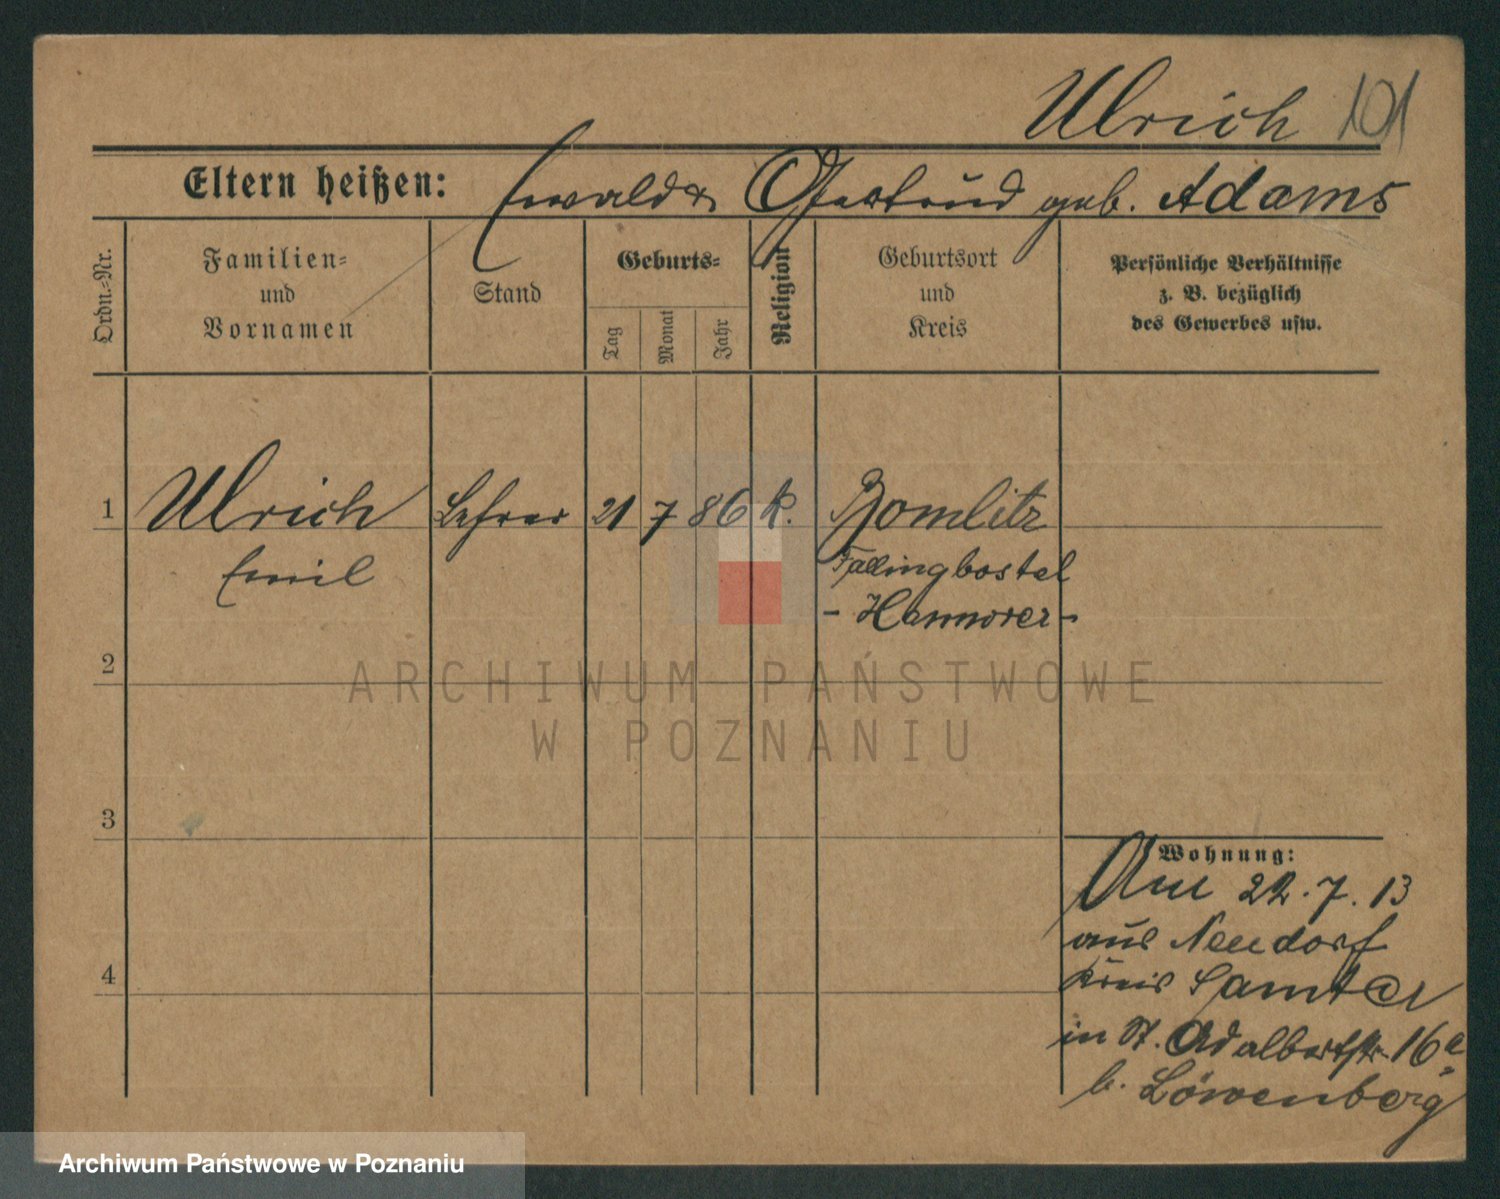 Ulrich 101
Eltern heißen: Ewald & Gertrud geb. Adams
Ordn.-Nr.
Familien-
und
Vornamen
Stand
Geburts-
Tag
Monat
Jahr
Religion
Geburtsort
und
Kreis
Persönliche Verhältnisse
z. B. bezüglich
des Gewerbes usw.
1 Ulrich Lehrer 21 7 86 k. Bomlitz
Emil Fallingbostel
- Hannover -
2
ARCHIWUM PAŃSTWOWE
W POZNANIU
3
Wohnung:
Am 22.7.13
aus Neudorf
4 Kreis Samter
in St. Adalbertstr. 16a
b. Löwenberg
Archiwum Państwowe w Poznaniu